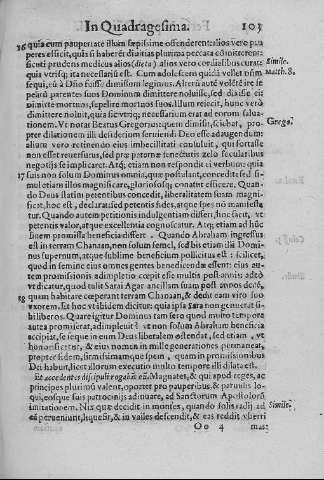 In Quadragesima. 103
26 quia cum paupertate illum sæpissime offenderent: alios vero pau
peres efficit, quis si haberet diuitias plurima peccata cõmitterent:
sicuti prudens medicus alios (dieta) alios vero cordialibus curat: Simile.
quia vtrisq; ita necessarium est. Cum adolescens quidã vellet dñm Matth. 8.
sequi, eũ à Dño fuisse dimissum legimus. Alterũ autẽ volẽtẽ ire se
peliri parentẽ suos Dominum dimittere noluisse, sed dixisse ei:
dimitte mortuos, sepelire mortuos suos. Illum reiecit, hunc verò
dimittere noluit, quia sic vtriq; necessarium erat ad eorum salua-
tionem. Vt notat Beatus Gregorius: quem dimisit, sciebat, pro- Grego.
pter dilationem illi desiderium seruiendi Deo esse adaugendum:
alium vero retinendo eius imbecillitati consuluit, qui fortasse
non esset reuersurus, sed præ patrum senectutis zelo secularibus
negotijs se implicaret. Atq; etiam non respondit ei verbum: quia
17 suis non solum Dominus omnia, quæ postulant, concedit sed si-
mul etiam illos magnificat, gloriososq; conatur efficere. Quan-
do Deus statim petentibus concedit, liberalitatem suam magni-
ficat, hoc est, declarat: sed petentis fides, atque spes nõ manifesta
tur. Quando autem petitionis indulgentiam differt, hoc facit, vt
petentis valor, atque excellentia cognoscatur. Atq; etiam ad hũc
finem promissa beneficia differt. Quando Abraham ingressus
est in terram Chanaan, non solum semel, sed bis etiam illi Domi
nus supernum, atque sublime beneficium pollicitus est: scilicet,
quod in semine eius omnes gentes benedicendæ essent: eius au-
tem promissionis adimpletio cœpit esse multis post annis: adeò
vt dicatur, quod tulit Sarai Agar ancillam suam post annos decẽ,
28 quam habitare cœperant terram Chanaan, & dedit eam viro suo
vxorem. Est hoc vtibidem dicitur: quia ipsa Sara non generat si-
bi liberos. Quare igitur Dominus tam sero quod multo tempore
autea promiserat, adimpleuit? vt non solum Abraham beneficia
accipiat, se scque in eum Deus liberalem ostendat, sed etiam, vt
honorificetur, & eius nomen in mille generationes permaneat,
propter fidem, firmissimamque spem, quam in promissionibus
Dei habuit, licet illorum executio multo tempore illi dilata est.
Et accedentes discipuli rogabãt eũ. Magnates, & qui apud reges, ac
principes plurimũ valent, oportet pro pauperibus, & paruulis lo-
qui, eosque suis patrocinijs adiuuare, ad Sanctorum Apostolorũ
imitationem. Nix quæ decidit in montes, quando solis radij ad Simile.
eã perueniunt, liquesit, & in valles descendit, & eas reddit vberri
Oo 4 mas: